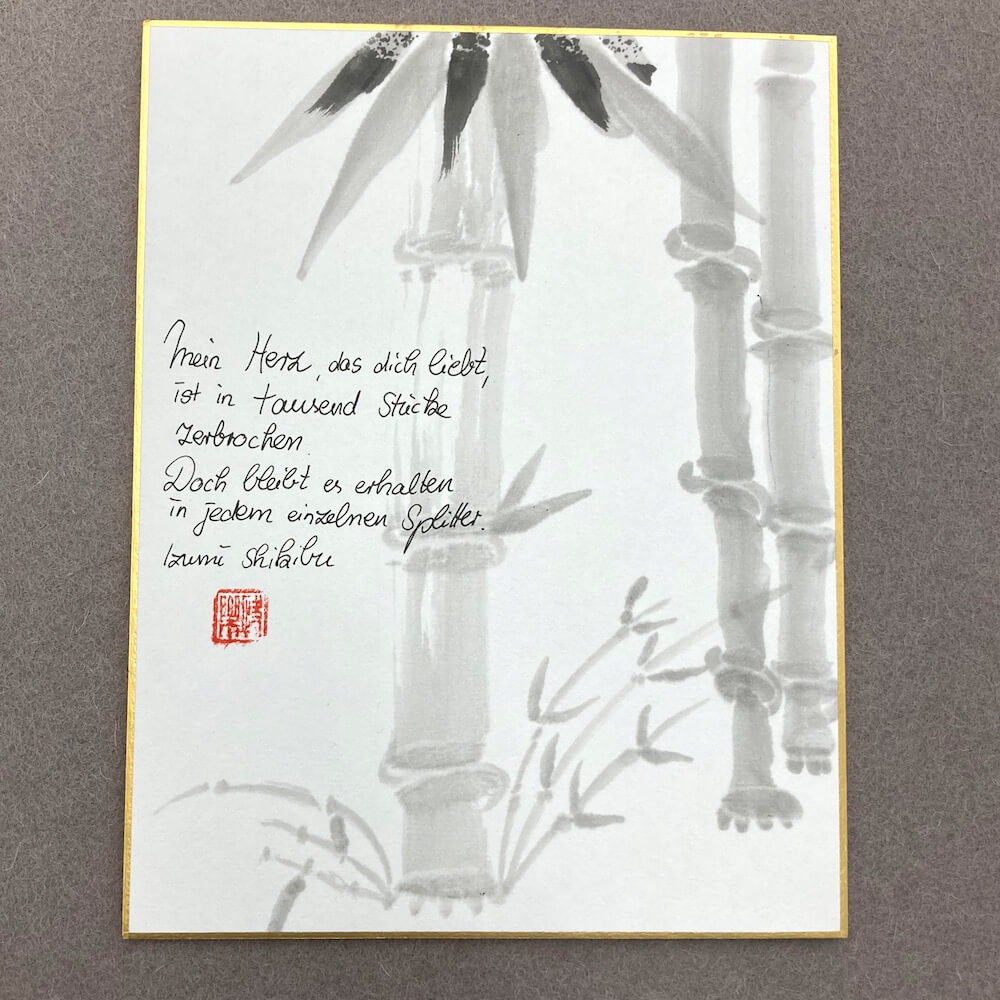 Mein Herz, das dich liebt,
ist in tausend Stücke
zerbrochen.
Doch bleibt es erhalten
in jedem einzelnen Splitter.
Izumi Shikibu